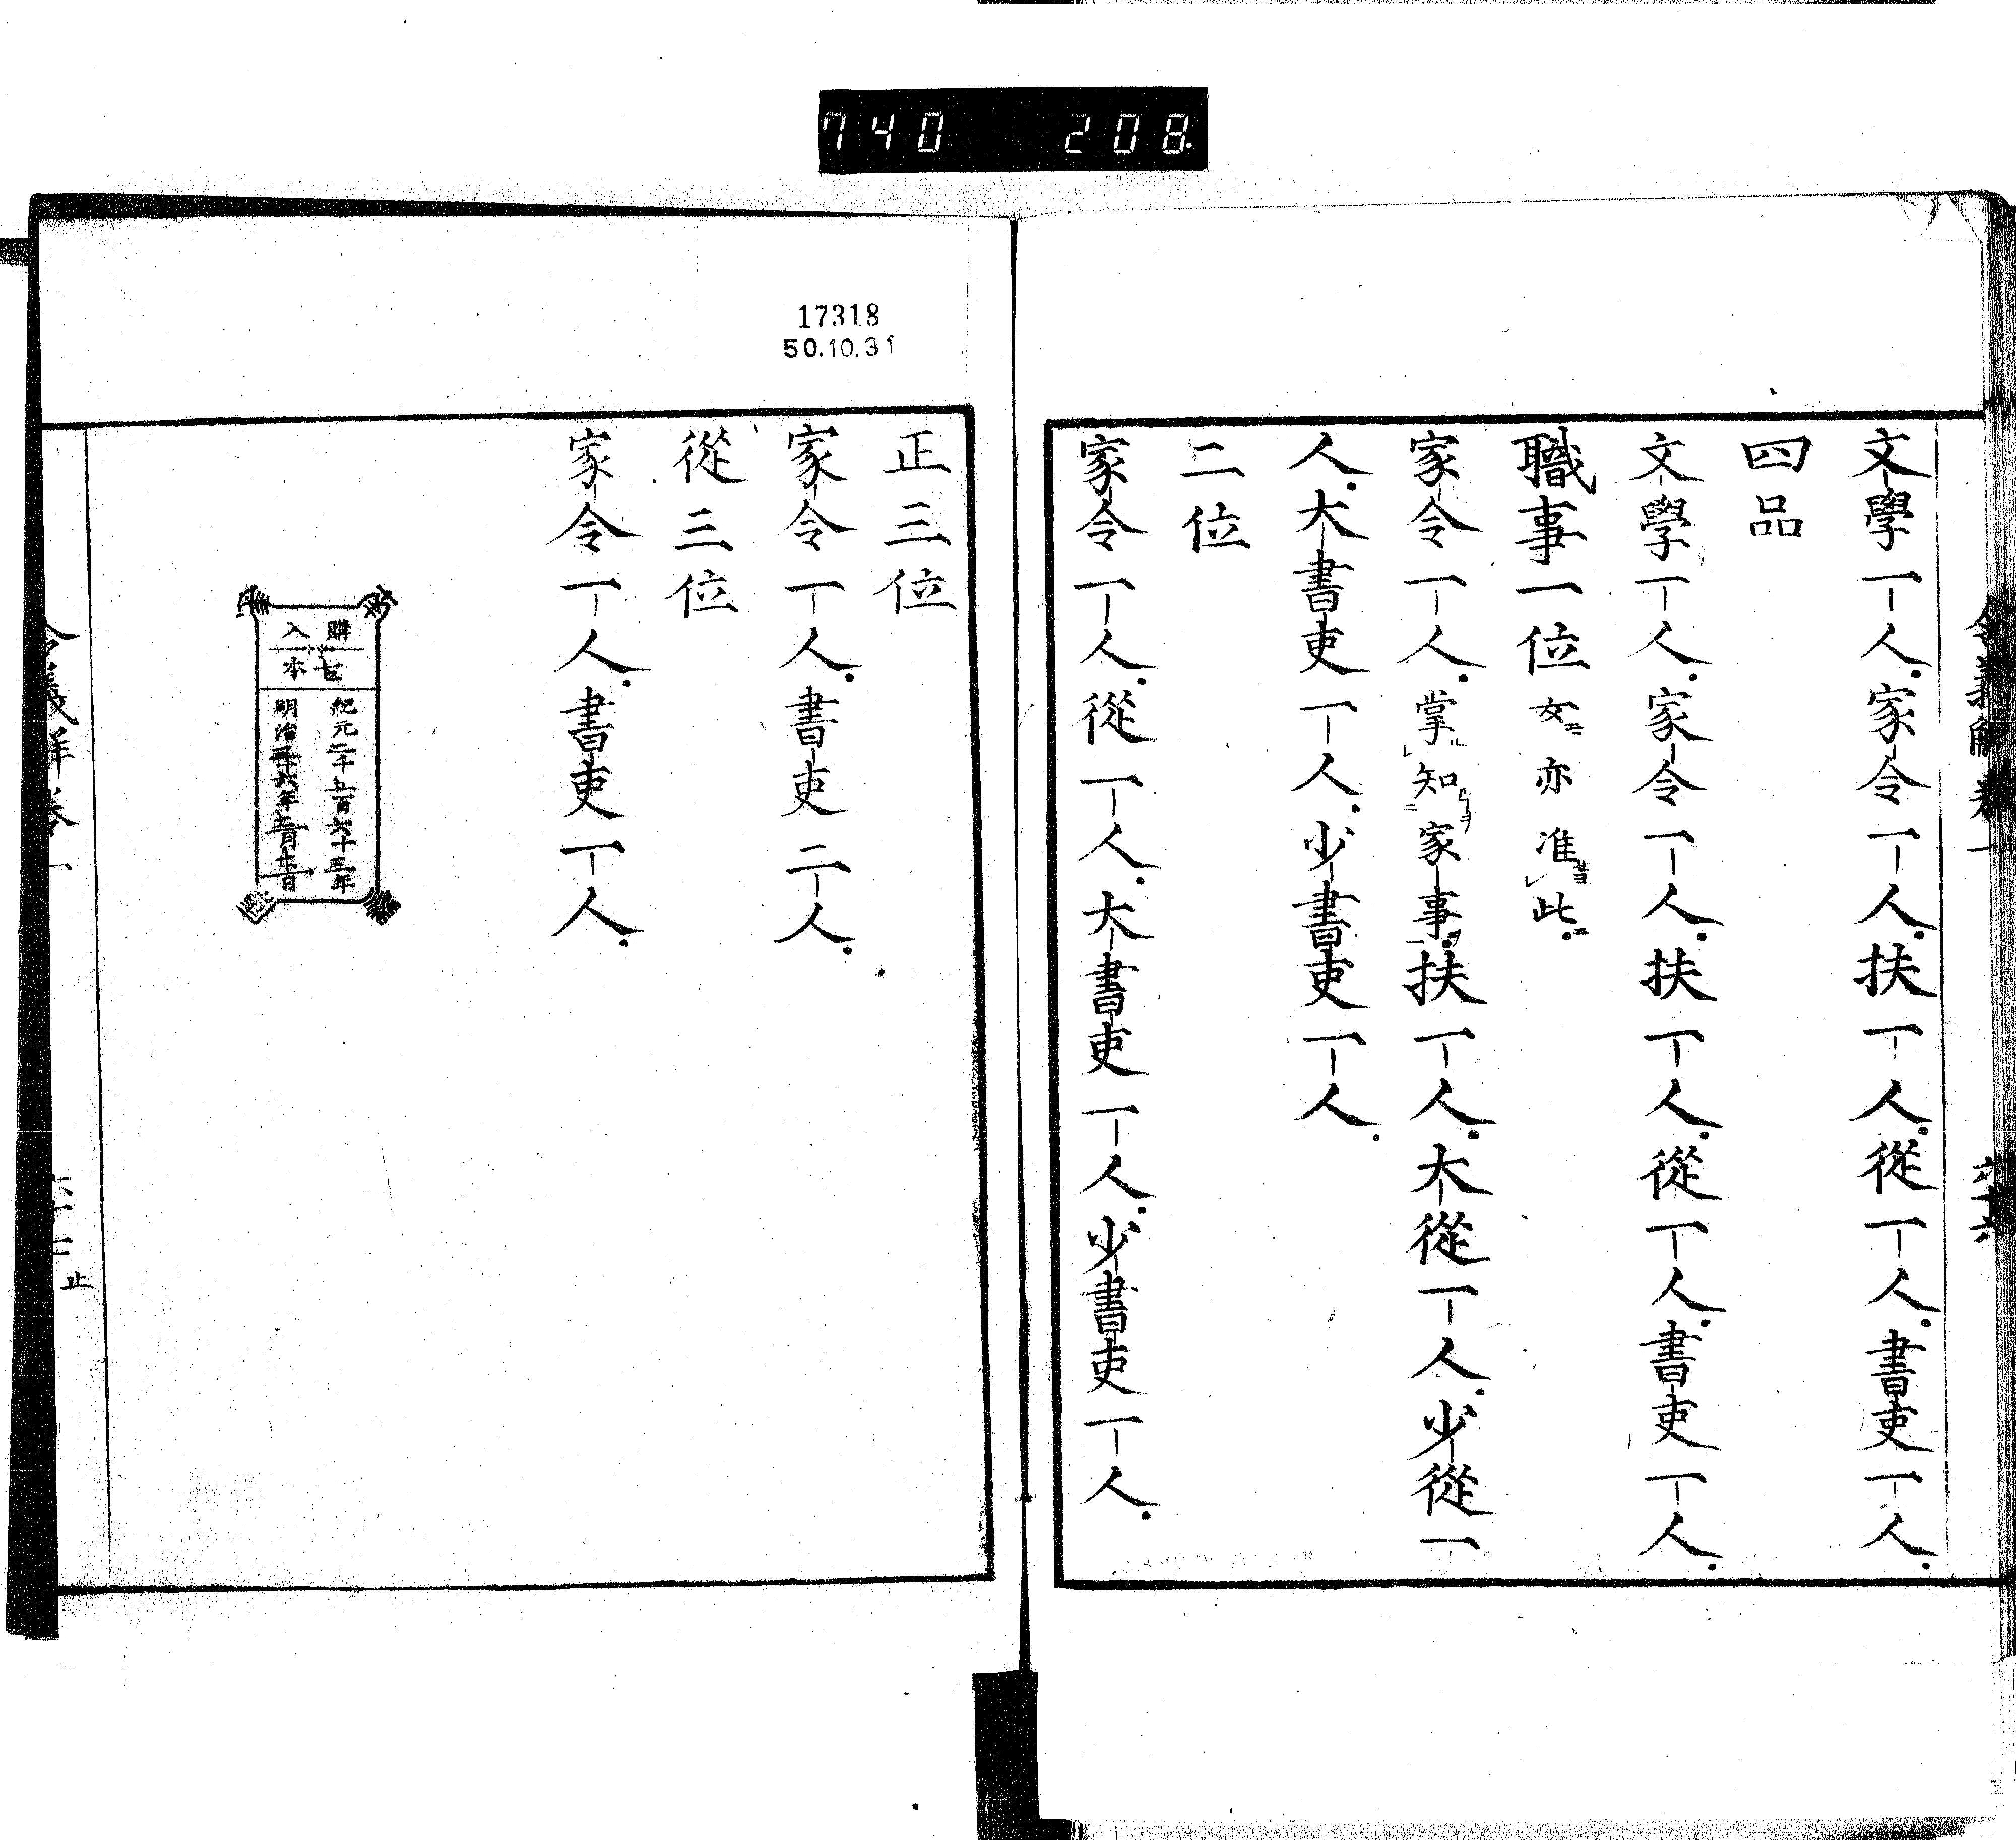 740 208
令義解卷一 六十六
文學一人家令一人扶一人從一人書吏一人
四品
文學一人家令一人扶一人從一人書吏一人
職事一位女亦准此
家令一人掌知家事扶一人大從一人少從一
人大書吏一人少書吏一人
二位
家令一人從一人大書吏一人少書吏一人
17318
50.10.31
正三位
家令一人書吏二人
從三位
家令一人書吏一人
購入
紀元二千五百六十三年
止